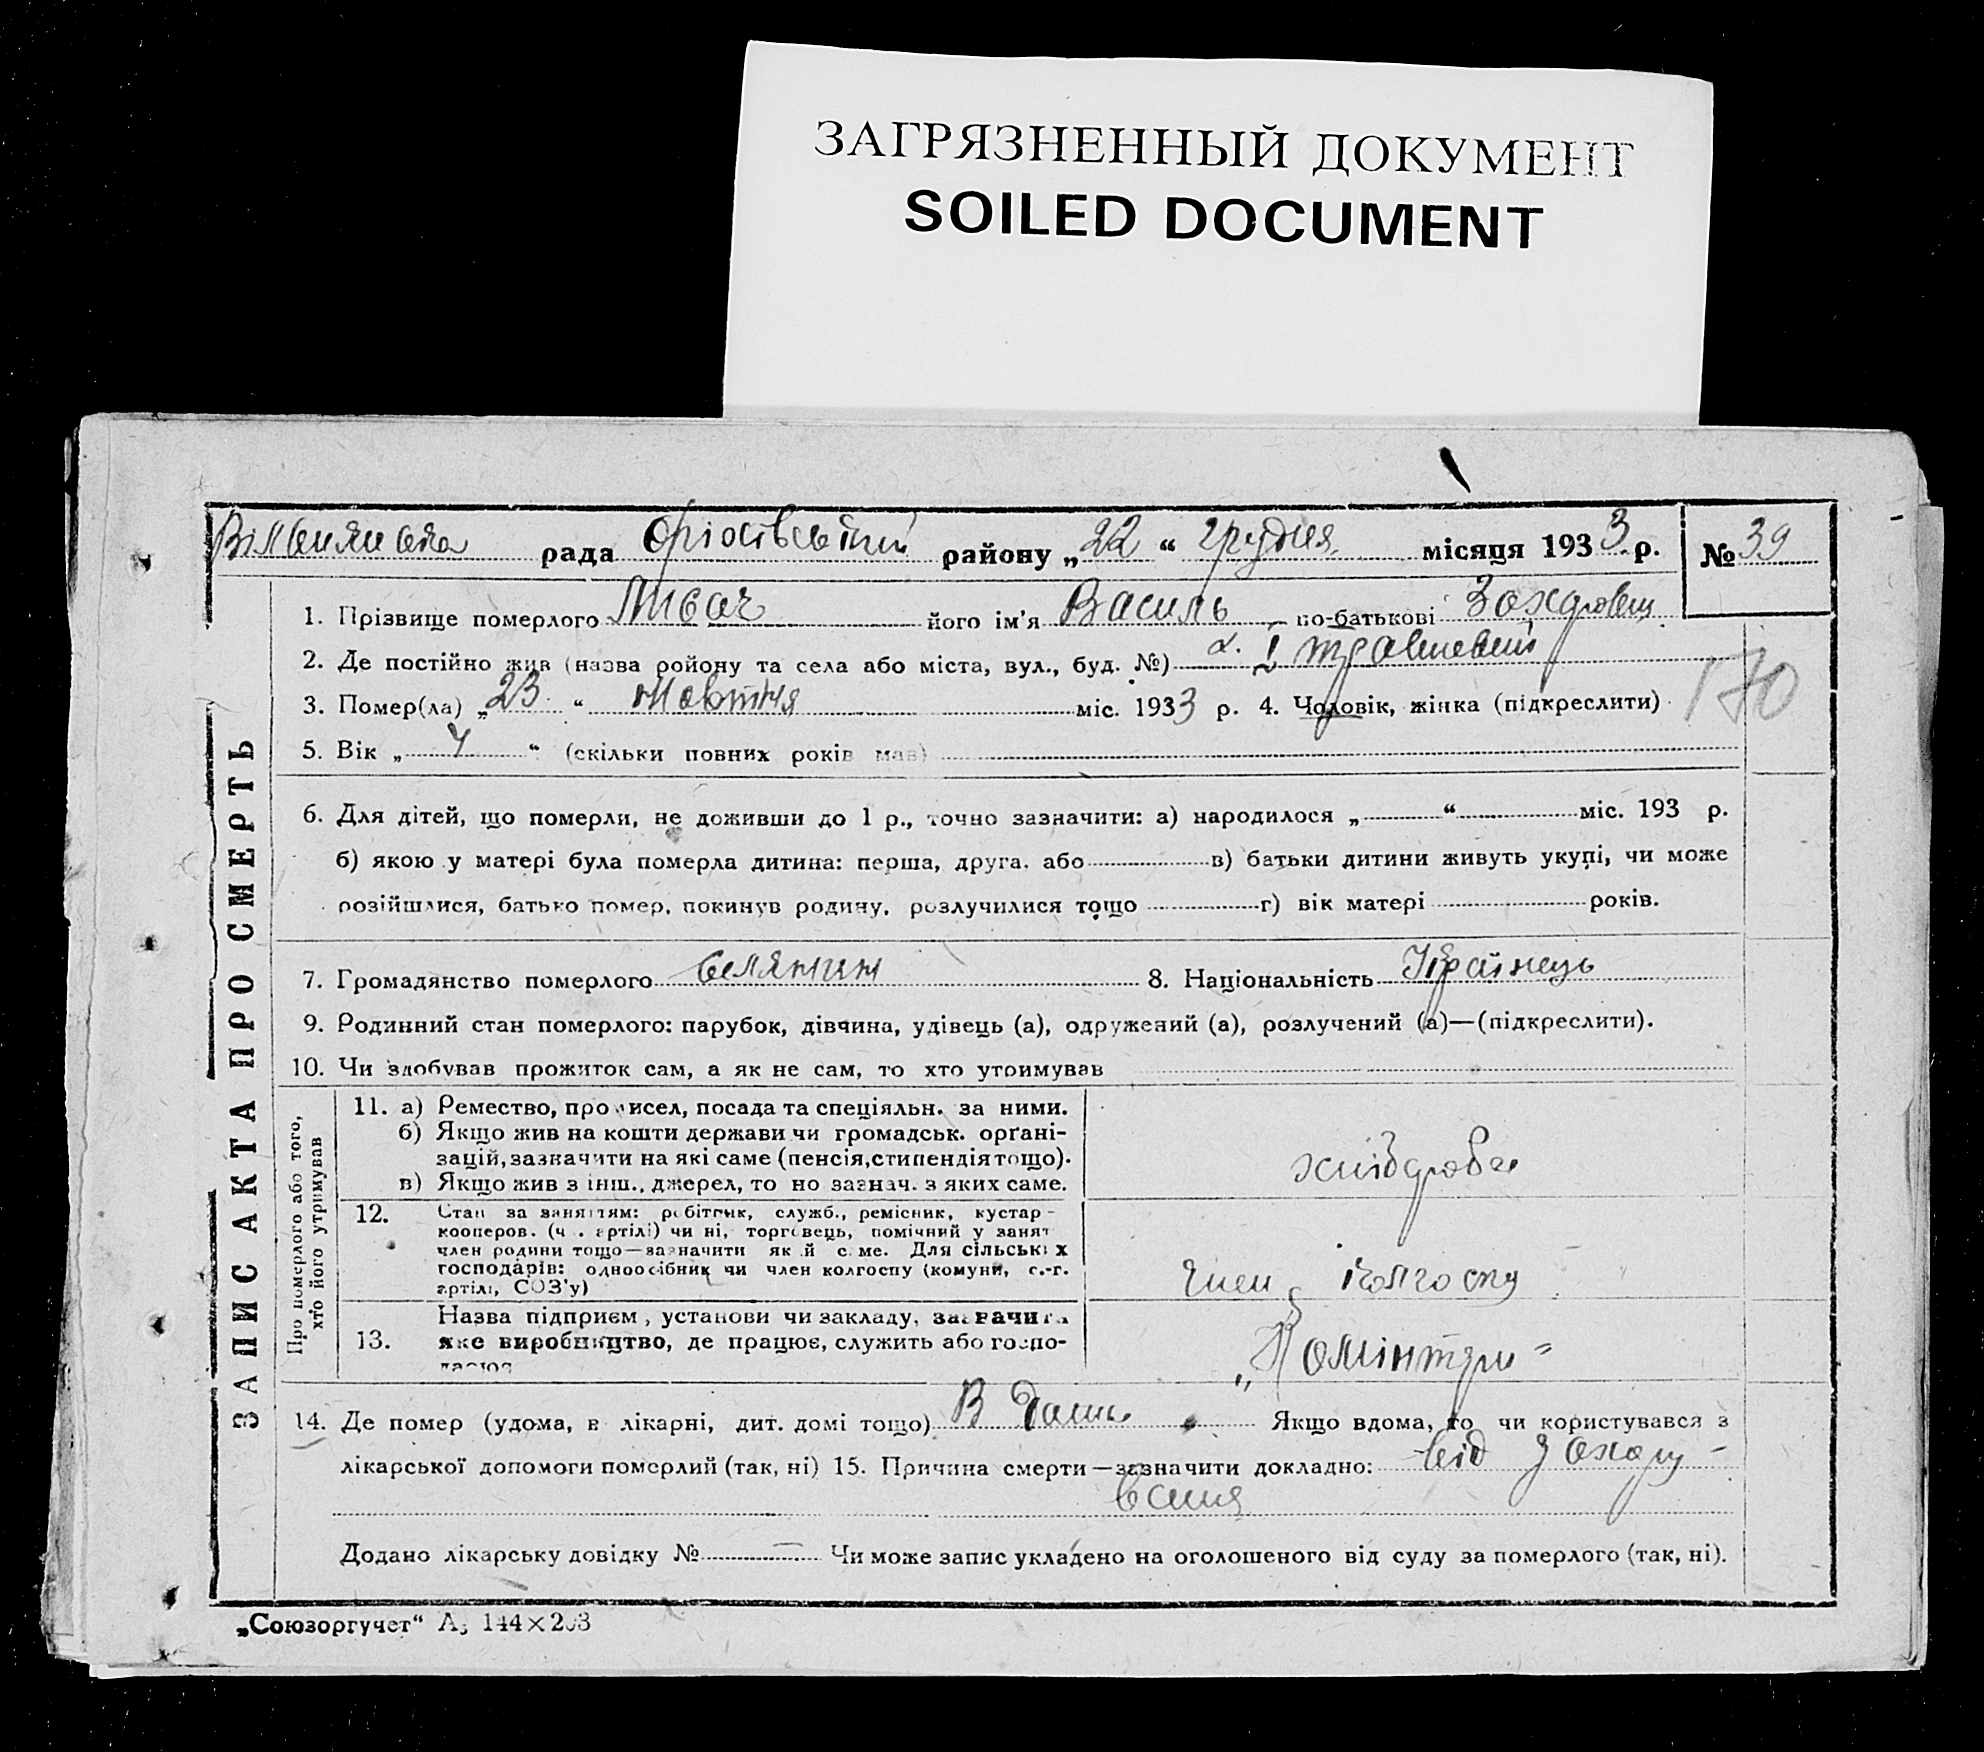 ЗАГРЯЗНЕННЫЙ ДОКУМЕНТ
SOILED DOCUMENT
рада району „22“ грудня місяця 1933 р. № 39
1. Прізвище померлого його ім'я Василь по-батькові
2. Де постійно жив (назва ройону та села або міста, вул., буд. №)
170
3. Помер(ла) „23“ жовтня міс. 1933 р. 4. Чоловік, жінка (підкреслити)
5. Вік „ “ (скільки повних років мав)
6. Для дітей, що померли, не доживши до 1 р., точно зазначити: а) народилося „ “ міс. 193 р.
б) якою у матері була померла дитина: перша, друга, або в) батьки дитини живуть укупі, чи може
розійшлися, батько помер, покинув родину, розлучилися тощо г) вік матері років.
7. Громадянство померлого селянин 8. Національність Українець
9. Родинний стан померлого: парубок, дівчина, удівець (а), одружений (а), розлучений (а)—(підкреслити).
10. Чи здобував прожиток сам, а як не сам, то хто утримував
ЗАПИС АКТА ПРО СМЕРТЬ
Про померлого або того,
хто його утримував
11. а) Ремество, промисел, посада та спеціяльн. за ними.
б) Якщо жив на кошти держави чи громадськ. орґані-
зацій, зазначити на які саме (пенсія, стипендія тощо).
в) Якщо жив з інш., джерел, то но зазнач. з яких саме.
хлібороб
12. Стан за заняттям: робітник, служб., ремісник, кустар-
кооперов. (ч. артілі) чи ні, торговець, помічний у занят
член родини тощо—зазначити який саме. Для сільських
господарів: одноосібник чи член колгоспу (комуни, с.-г.
артілі, СОЗ'у)
член колгоспу
13. Назва підприєм, установи чи закладу, зазначити
яке виробництво, де працює, служить або госпо-
дарює
„Комінтерн“
14. Де помер (удома, в лікарні, дит. домі тощо) В дома Якщо вдома, то чи користувався з
лікарської допомоги померлий (так, ні) 15. Причина смерти—зазначити докладно: від
Додано лікарську довідку № — Чи може запис укладено на оголошеного від суду за померлого (так, ні).
„Союзоргучет“ А5 144×203